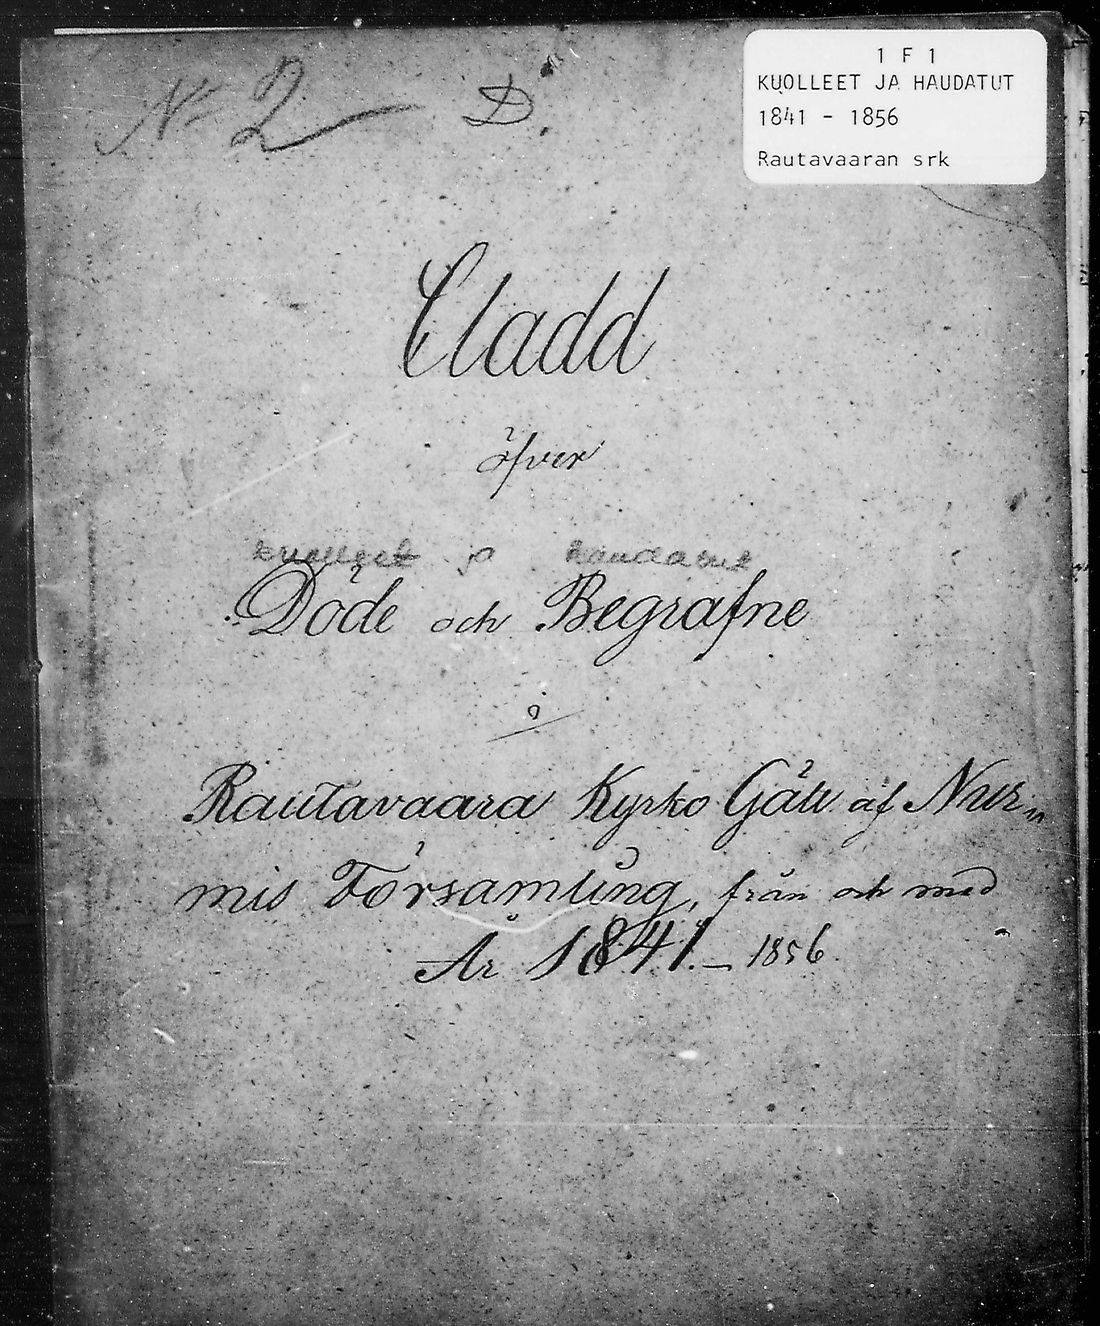 1 F 1
KUOLLEET JA HAUDATUT
1841 - 1856
Rautavaaran srk
No 2 D.
Cladd
öfver
kuolleet ja haudatut
Döde och Begrafne
i
Rautavaara Kyrko Gäll af Nur„
mis Församling, från och med
År 1841. — 1856.